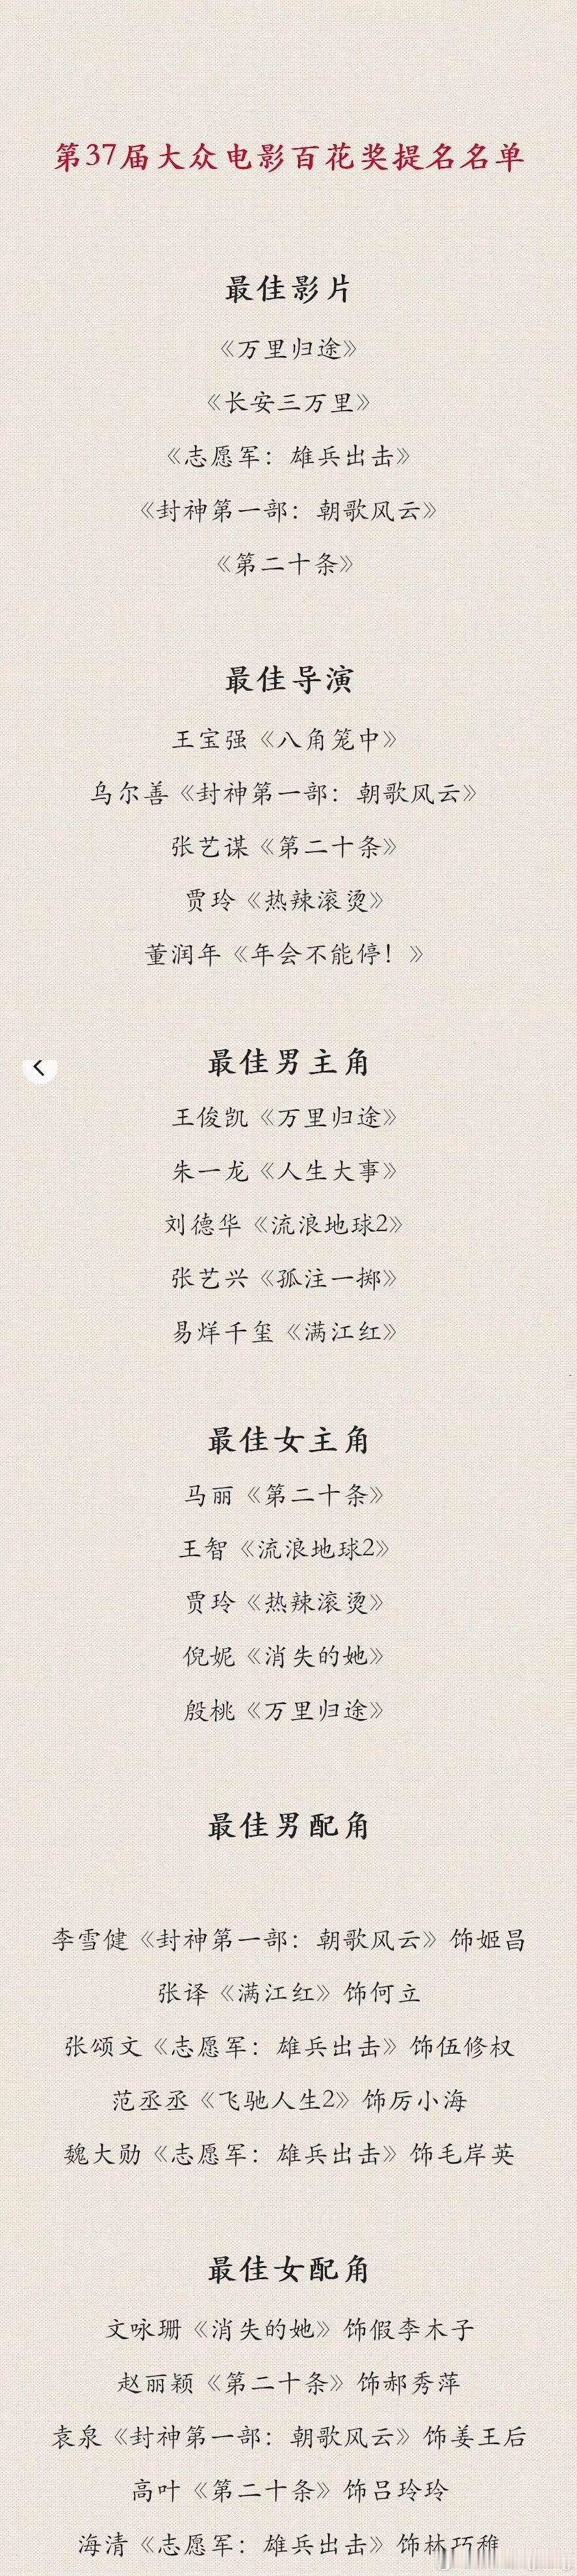 第37届大众电影百花奖提名名单
最佳影片
《万里归途》
《长安三万里》
《志愿军：雄兵出击》
《封神第一部：朝歌风云》
《第二十条》
最佳导演
王宝强《八角笼中》
乌尔善《封神第一部：朝歌风云》
张艺谋《第二十条》
贾玲《热辣滚烫》
董润年《年会不能停！》
最佳男主角
王俊凯《万里归途》
朱一龙《人生大事》
刘德华《流浪地球2》
张艺兴《孤注一掷》
易烊千玺《满江红》
最佳女主角
马丽《第二十条》
王智《流浪地球2》
贾玲《热辣滚烫》
倪妮《消失的她》
殷桃《万里归途》
最佳男配角
李雪健《封神第一部：朝歌风云》饰姬昌
张译《满江红》饰何立
张颂文《志愿军：雄兵出击》饰伍修权
范丞丞《飞驰人生2》饰厉小海
魏大勋《志愿军：雄兵出击》饰毛岸英
最佳女配角
文咏珊《消失的她》饰假李木子
赵丽颖《第二十条》饰郝秀萍
袁泉《封神第一部：朝歌风云》饰姜王后
高叶《第二十条》饰吕玲玲
海清《志愿军：雄兵出击》饰林巧稚